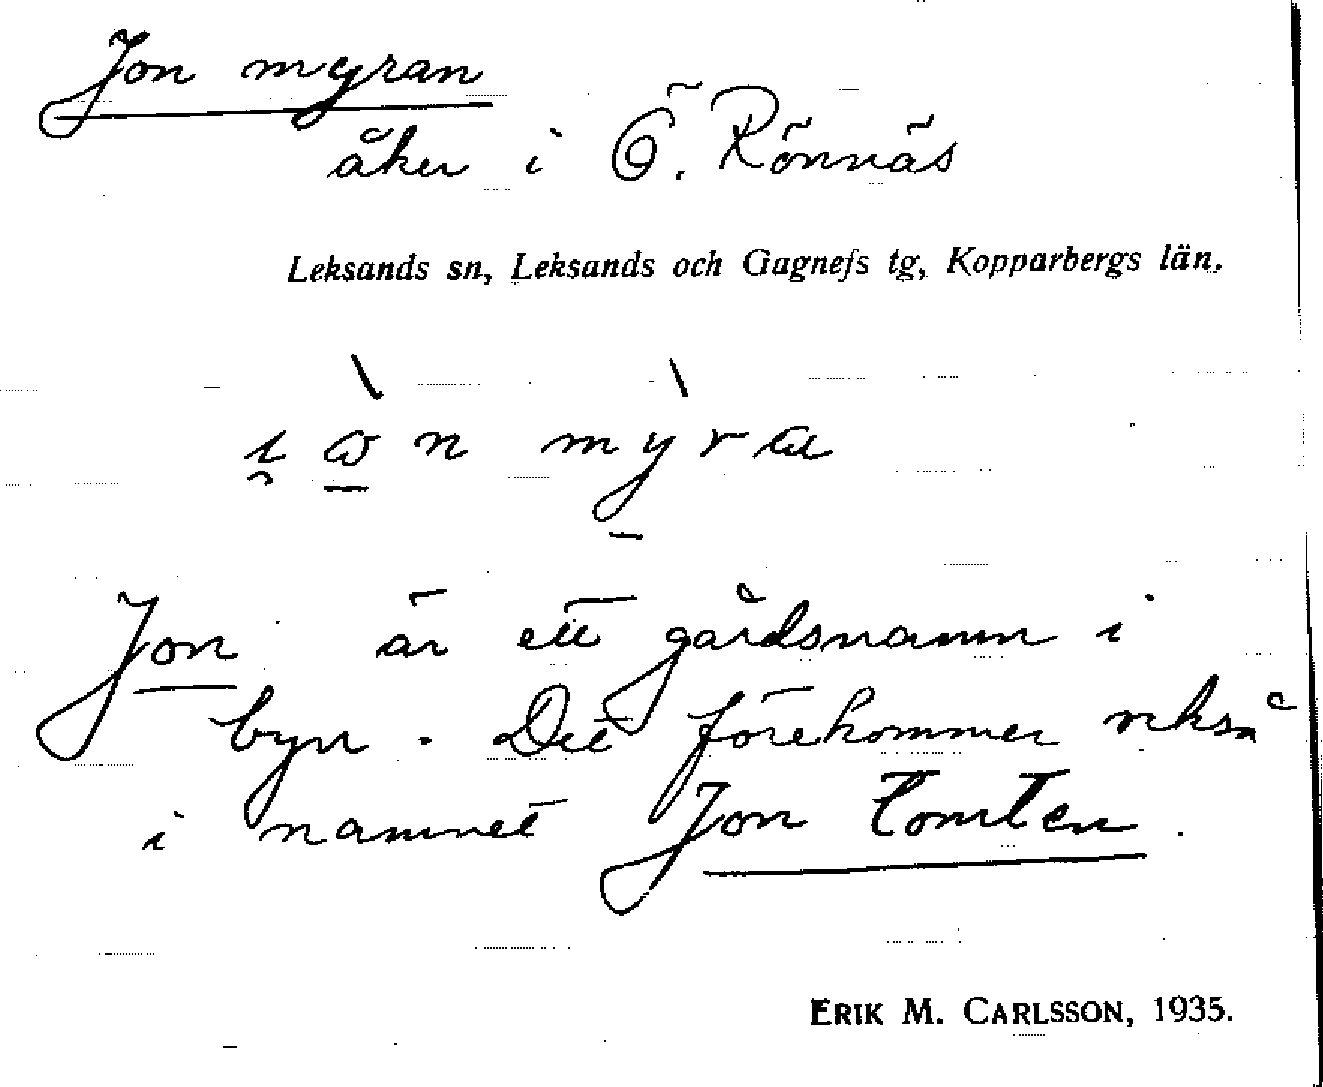 Jon myran
åker i Ö. Rönnäs
Leksands sn, Leksands och Gagnefs tg, Kopparbergs län.
Jon är ett gårdsnamn i
byn. Det förekommer också
i namnet Jon Tomten.
ERIK M. CARLSSON, 1935.